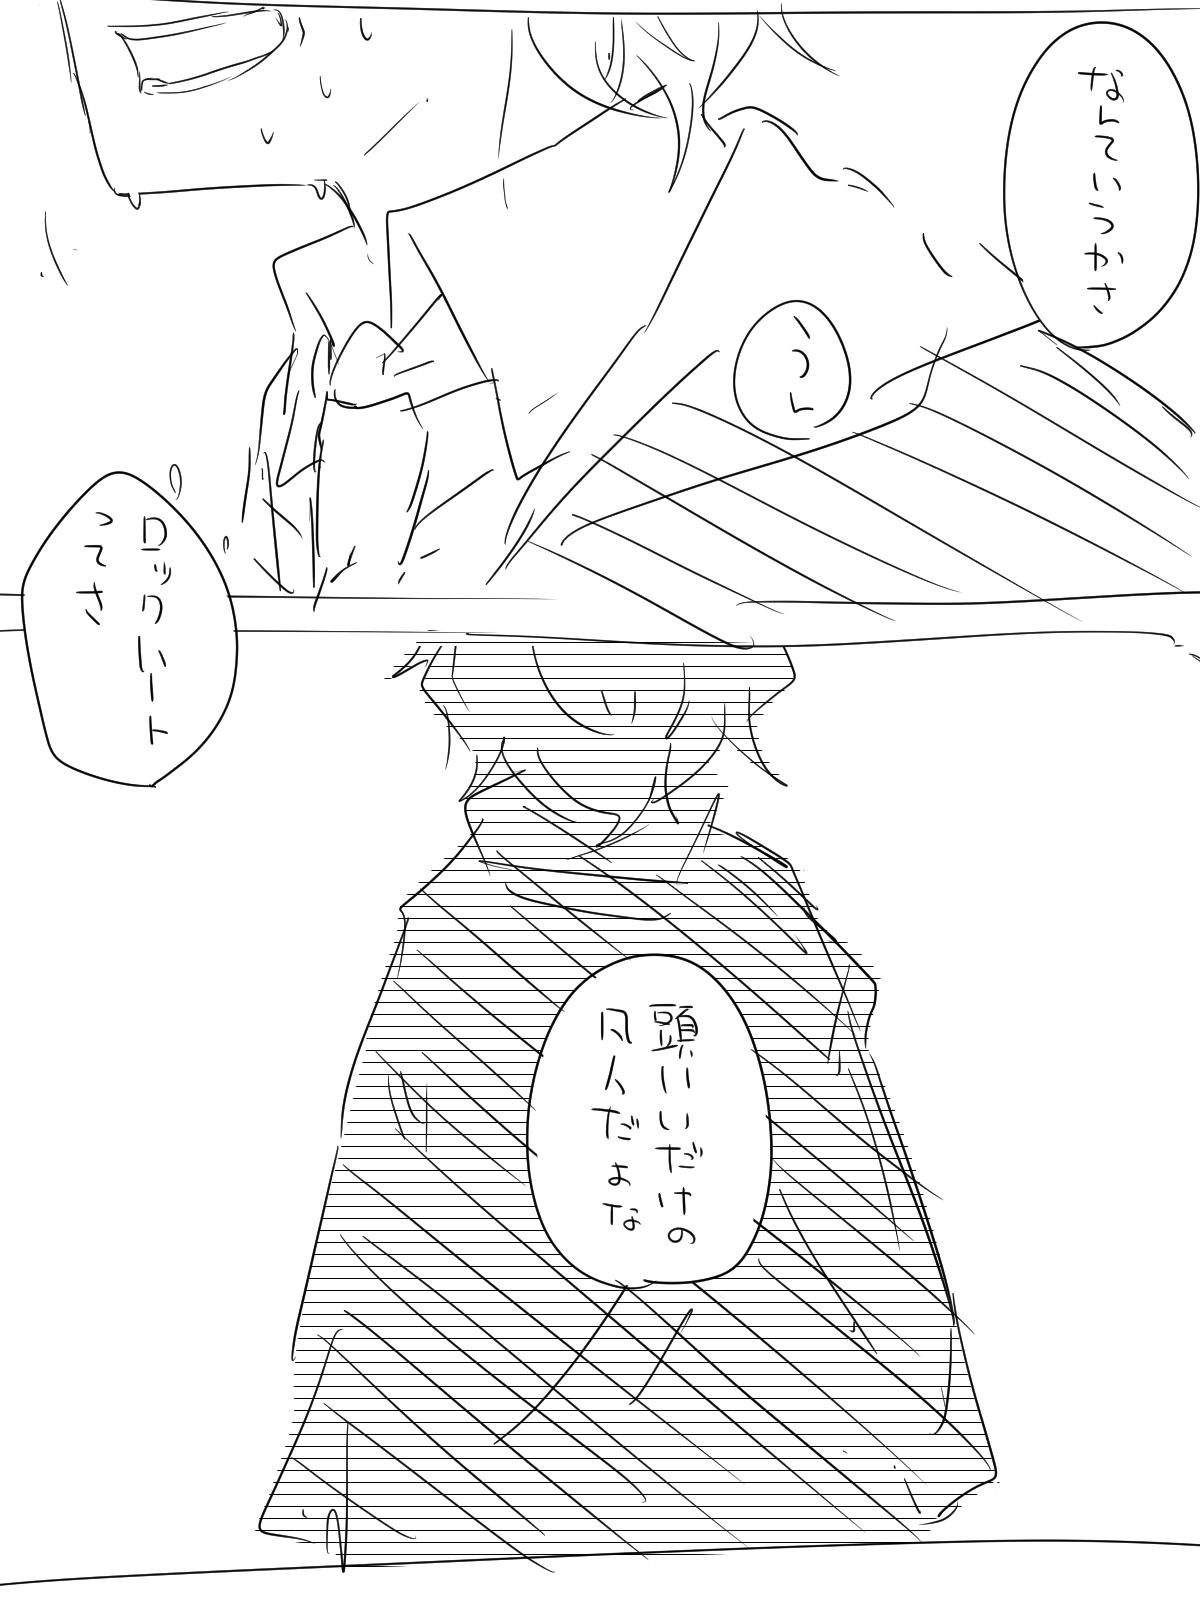 なんていうかさ
うん
ロックハート
ってさ
頭いいだけの
凡人だよな